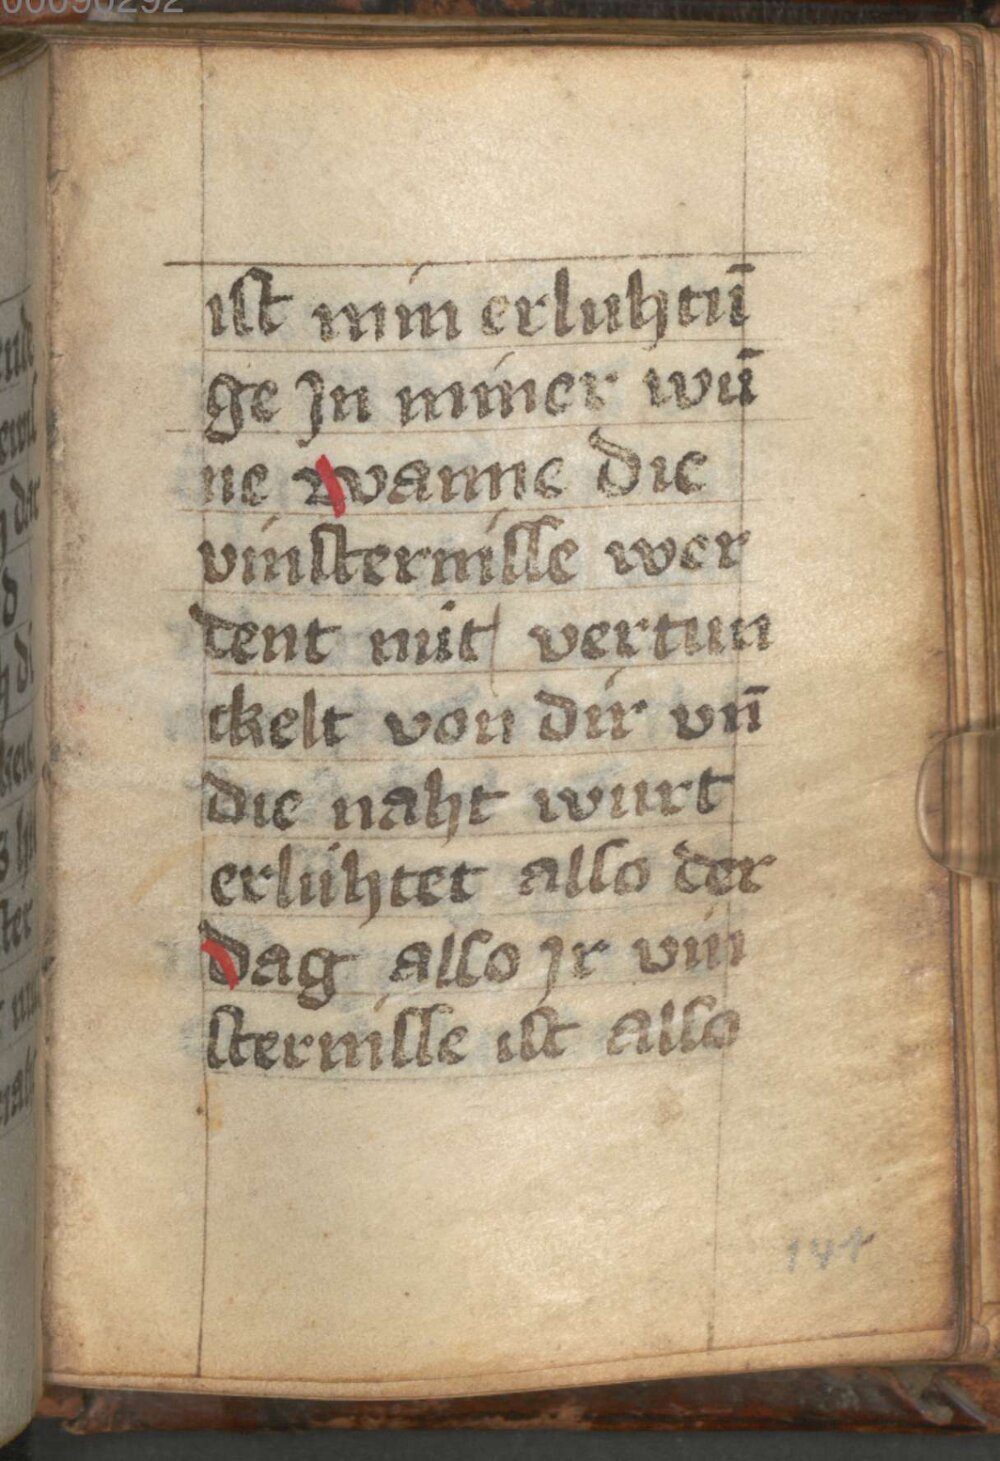 00090292
ist min erluhtū
ge Jn miner wū
ne wanne die
vinsternisse wer
dent mit vertun
ckelt von dir vn̄
die naht wurt
erlúhtet also der
dag also jr vin
sternisse ist also
141